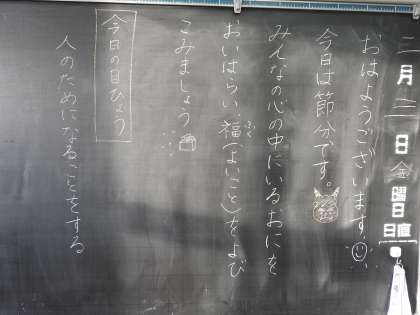 二月三日(金)曜日
日直
おはようございます。
今日は節分です。
みんなの心の中にいるおにを
おいはらい福(よいこと)をよび
ふく
こみましょう
今日の目ひょう
人のためになることをする